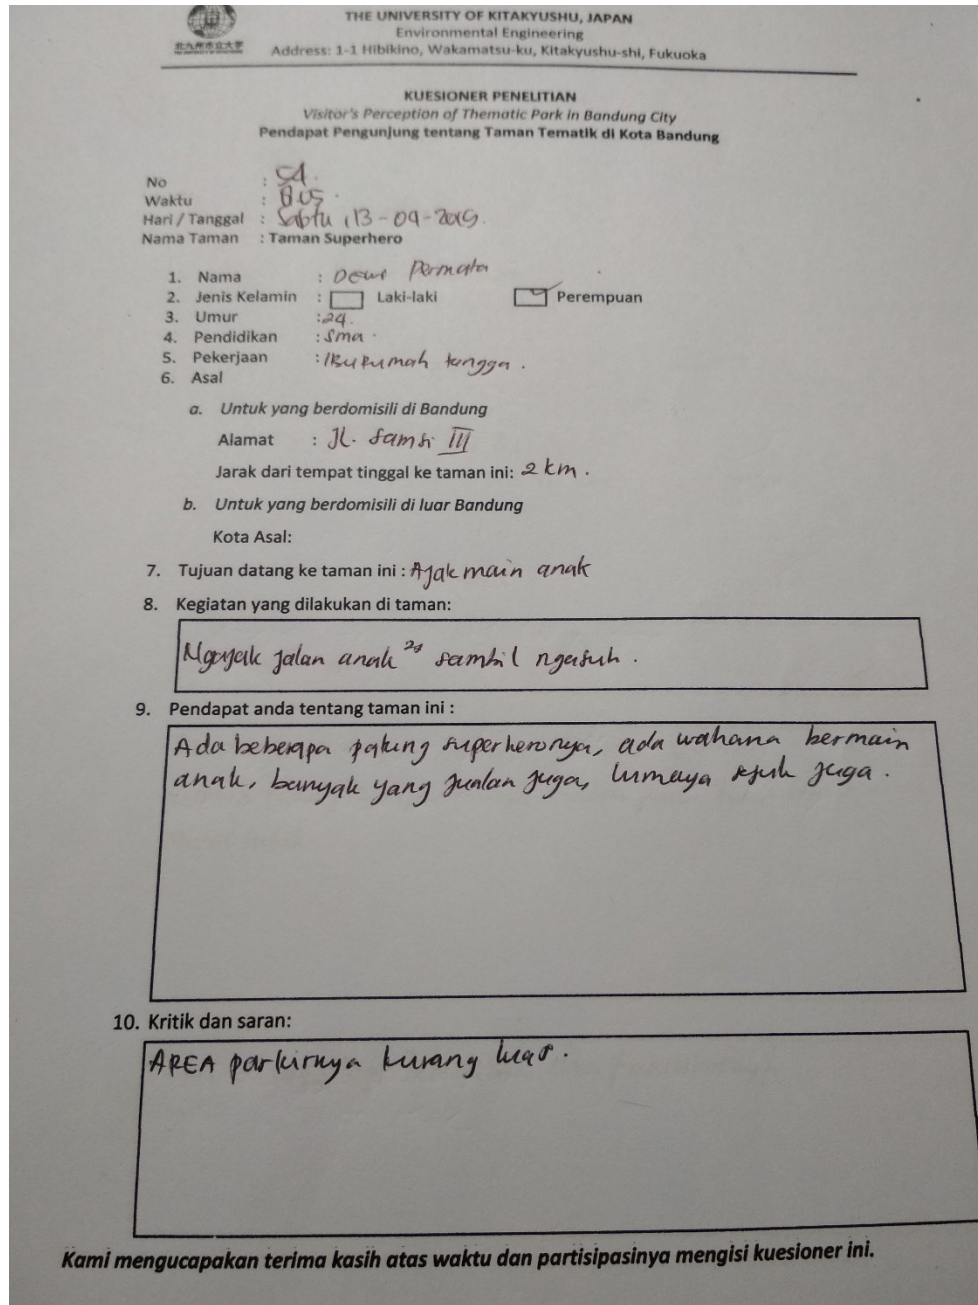 THE UNIVERSITY OF KITAKYUSHU, JAPAN
Environmental Engineering
北九州市立大学
Address: 1-1 Hibikino, Wakamatsu-ku, Kitakyushu-shi, Fukuoka
KUESIONER PENELITIAN
Visitor's Perception of Thematic Park in Bandung City
Pendapat Pengunjung tentang Taman Tematik di Kota Bandung
No :
Waktu :
Hari / Tanggal : Sabtu, 13-04-2019.
Nama Taman : Taman Superhero
1. Nama : Dewi Permata
2. Jenis Kelamin : Laki-laki Perempuan
3. Umur : 24.
4. Pendidikan : Sma.
5. Pekerjaan : IBu Rumah tangga.
6. Asal
a. Untuk yang berdomisili di Bandung
Alamat : Jl. Samsi III
Jarak dari tempat tinggal ke taman ini: 2 km.
b. Untuk yang berdomisili di luar Bandung
Kota Asal:
7. Tujuan datang ke taman ini : Ajak main anak
8. Kegiatan yang dilakukan di taman:
Ngajak jalan anak sambil ngasuh.
9. Pendapat anda tentang taman ini :
Ada beberapa patung superheronya, ada wahana bermain
anak, banyak yang jualan juga, lumaya sejuk juga.
10. Kritik dan saran:
AREA parkirnya kurang luas.
Kami mengucapakan terima kasih atas waktu dan partisipasinya mengisi kuesioner ini.